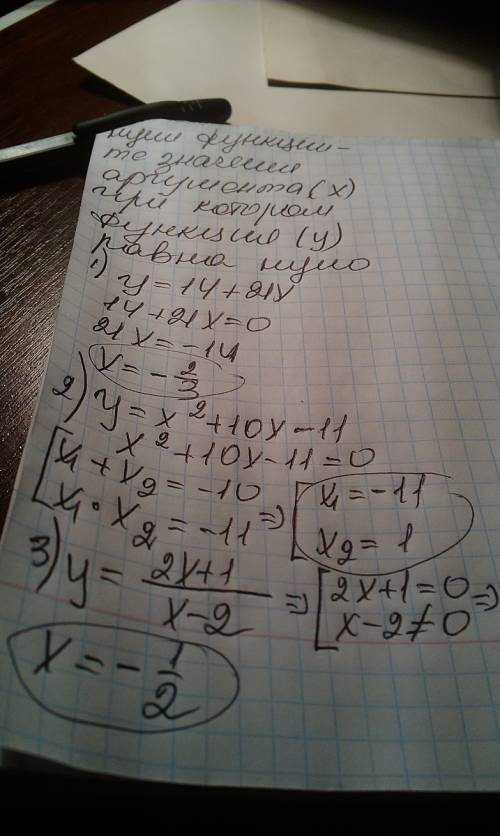 нули функции-
те значения
аргумента (x)
при котором
функция (y)
равна нулю
1) y=14+21x
14+21x=0
21x=-14
x=-2/3
2) y=x²+10x-11
x²+10x-11=0
[x₁+x₂=-10
x₁·x₂=-11 => [x₁=-11
x₂=1
3) y=(2x+1)/(x-2) => [2x+1=0
x-2≠0 =>
x=-1/2